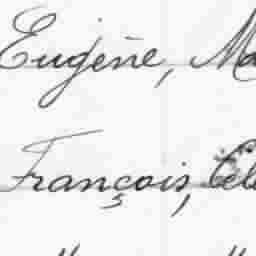 Eugène, Ma
François, Cél